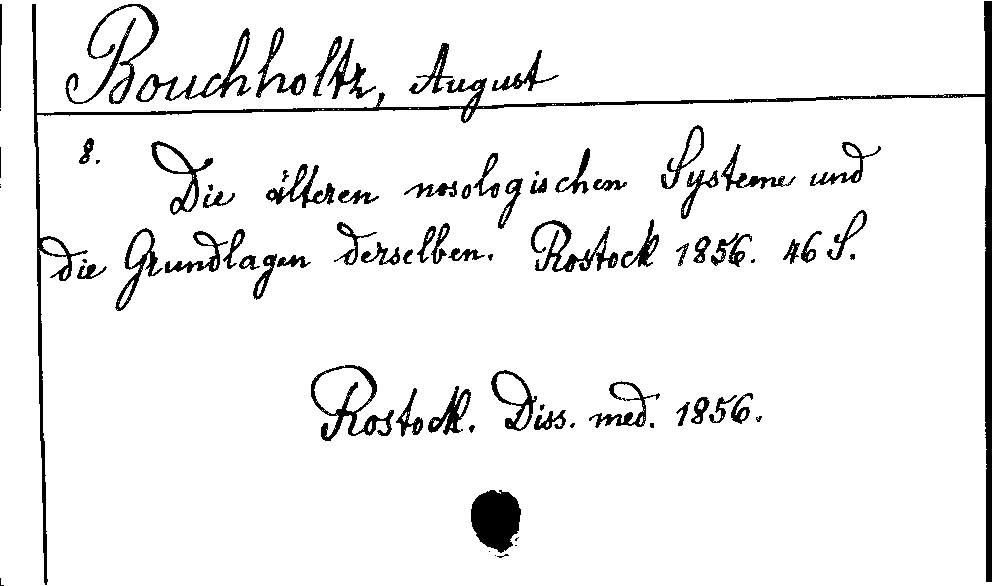 Bouchholtz, August
8. Die älteren nosologischen Systeme und
die Grundlagen derselben. Rostock 1856. 46 S.
Rostock. Diss. med. 1856.